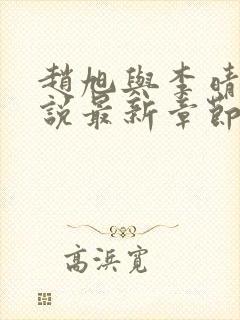 趙旭與李晴
說最新章節
高浜寬